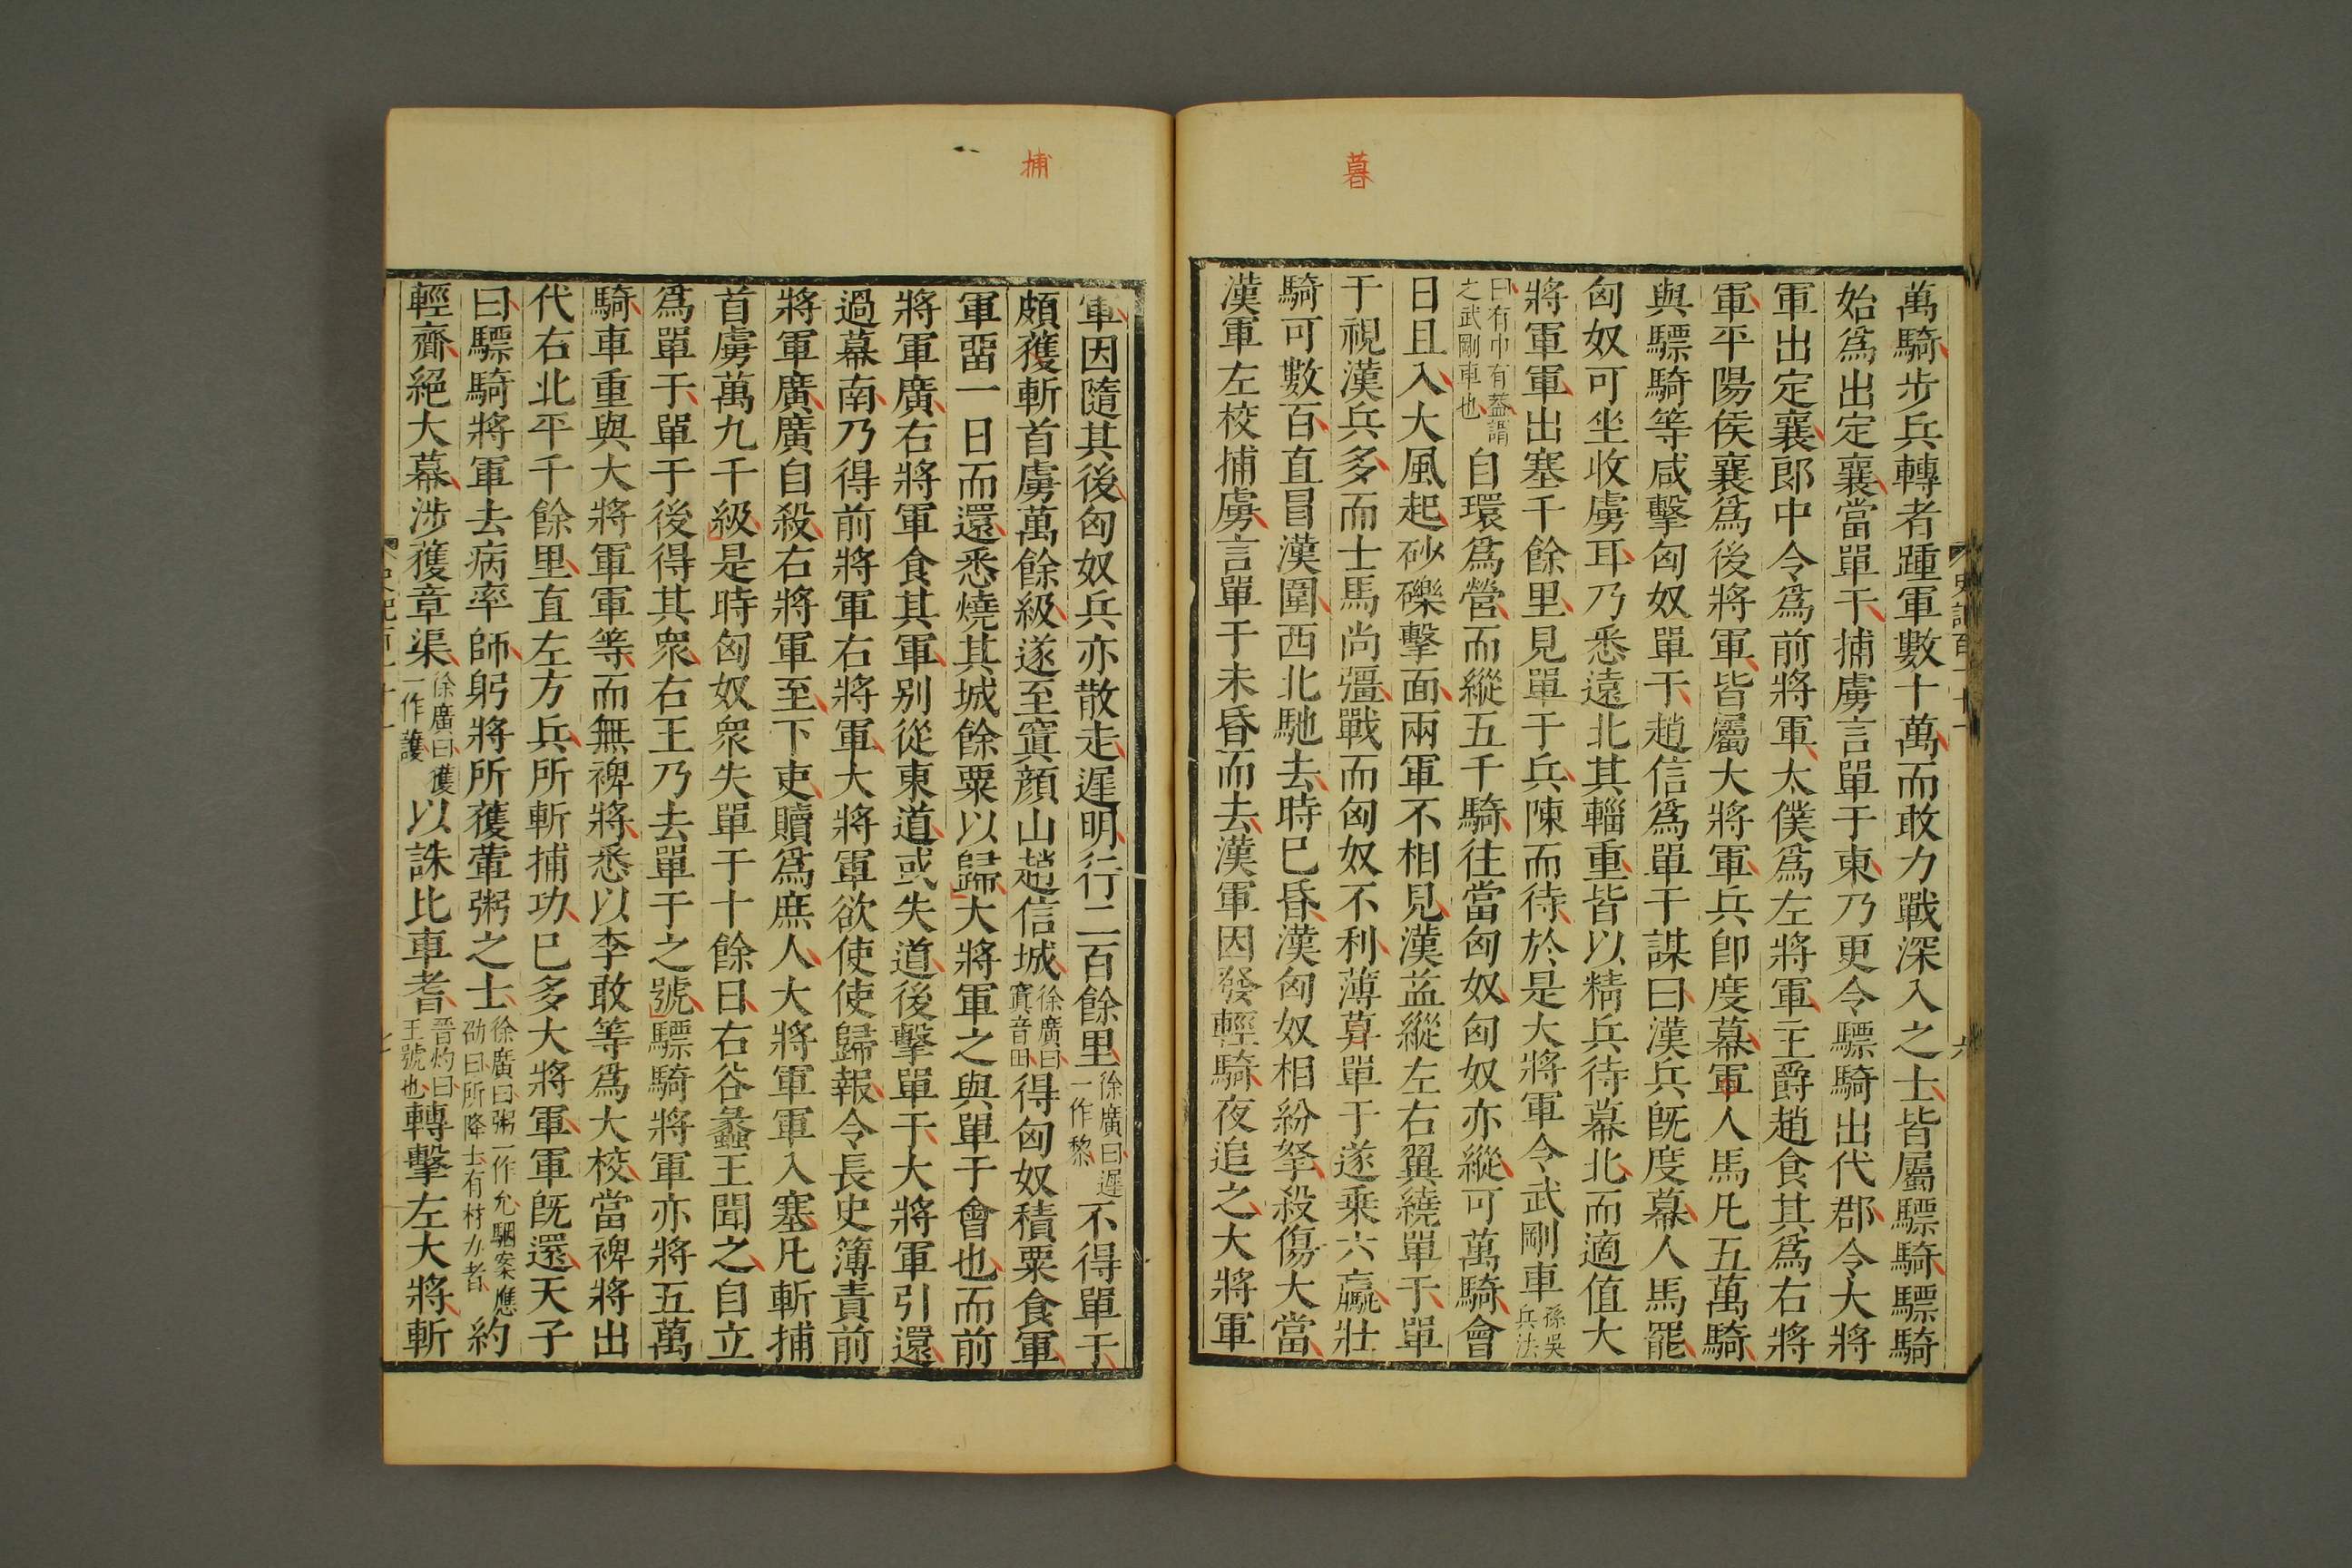 暮
萬騎步兵轉者踵軍數十萬而敢力戰深入之士皆屬驃騎驃騎
始爲出定襄當單于捕虜言單于東乃更令驃騎出代郡令大將
軍出定襄郎中令爲前將軍太僕爲左將軍主爵趙食其爲右將
軍平陽侯襄爲後將軍皆屬大將軍兵卽度幕軍人馬凡五萬騎
與驃騎等咸擊匈奴單于趙信爲單于謀曰漢兵旣度幕人馬罷
匈奴可坐收虜耳乃悉遠北其輜重皆以精兵待幕北而適值大
將軍軍出塞千餘里見單于兵陳而待於是大將軍令武剛車孫吳兵法
曰有巾有蓋謂之武剛車也自環爲營而縱五千騎往當匈奴匈奴亦縱可萬騎會
日且入大風起砂礫擊面兩軍不相見漢益縱左右翼繞單于單
于視漢兵多而士馬尚彊戰而匈奴不利薄莫單于遂乗六驘壯
騎可數百直冒漢圍西北馳去時已昏漢匈奴相紛挐殺傷大當
漢軍左校捕虜言單于未昏而去漢軍因發輕騎夜追之大將軍
捕
軍因隨其後匈奴兵亦散走遲明行二百餘里徐廣曰遲一作黎不得單于
頗獲斬首虜萬餘級遂至窴顏山趙信城徐廣曰窴音田得匈奴積粟食軍
軍畱一日而還悉燒其城餘粟以歸大將軍之與單于會也而前
將軍廣右將軍食其軍別從東道或失道後擊單于大將軍引還
過幕南乃得前將軍右將軍大將軍欲使使歸報令長史簿責前
將軍廣廣自殺右將軍至下吏贖爲庶人大將軍軍入塞凡斬捕
首虜萬九千級是時匈奴衆失單于十餘日右谷蠡王聞之自立
爲單于單于後得其衆右王乃去單于之號驃騎將軍亦將五萬
騎車重與大將軍軍等而無裨將悉以李敢等爲大校當裨將出
代右北平千餘里直左方兵所斬捕功已多大將軍軍旣還天子
曰驃騎將軍去病率師躬將所獲葷粥之士徐廣曰粥一作允駰案應劭曰所降士有材力者約
輕齎絕大幕涉獲章渠徐廣曰獲一作護以誅比車耆晉灼曰王號也轉擊左大將斬